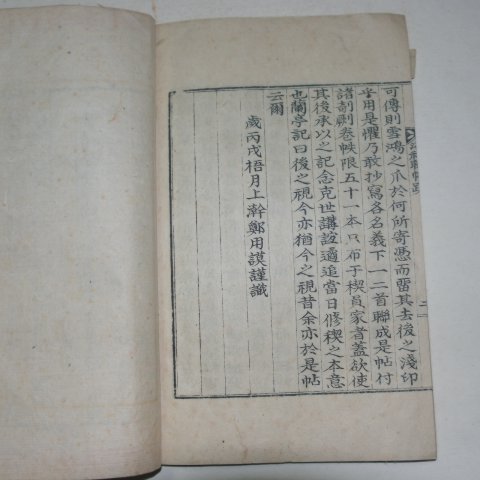 可傳則雪鴻之爪於何所寄憑而留其去後之淺印
乎用是懼乃敢抄寫各名義下一二首聯成是帖付
諸剞劂卷帙限五十一本只布于稧員家者蓋欲使
其後承以之記念克世講誼適追當日修稧之本意
也蘭亭記曰後之視今亦猶今之視昔余亦於是帖
云爾
歲丙戌梧月上澣鄭用謨謹識
二